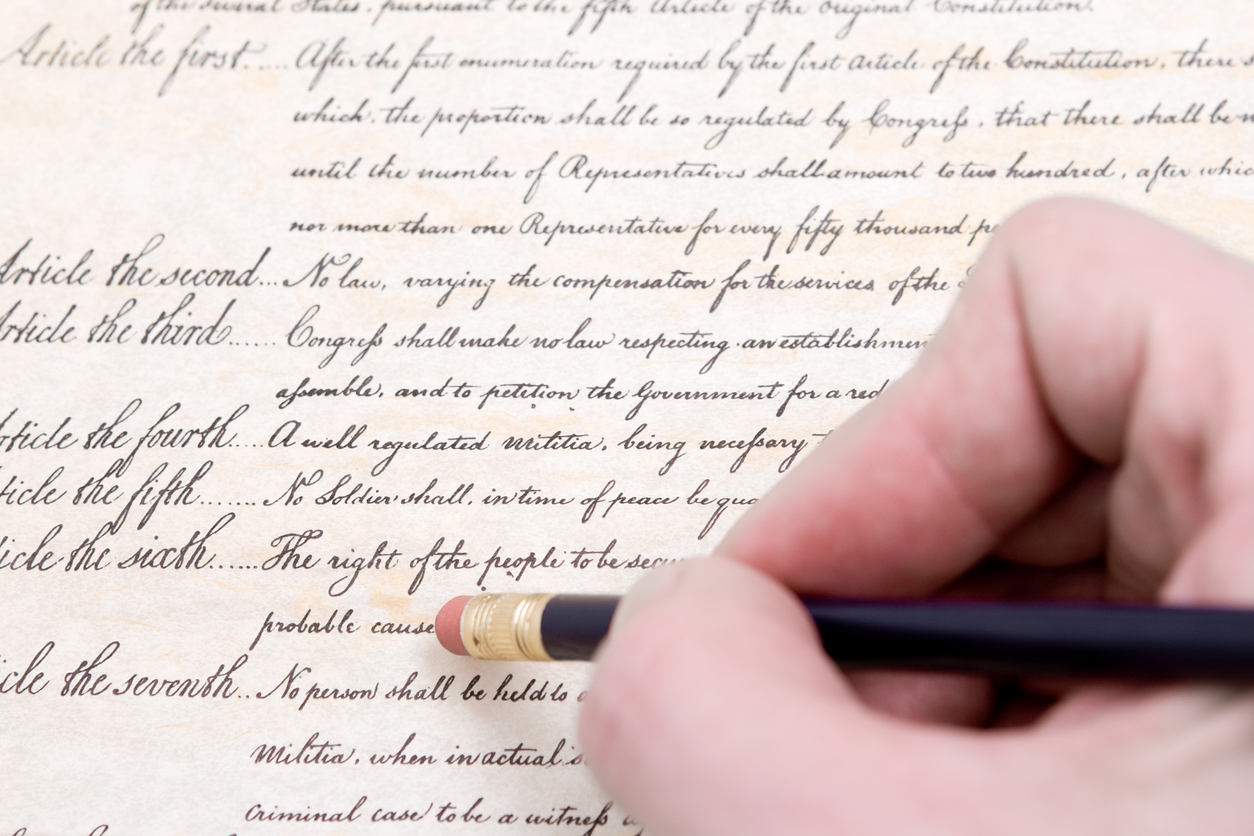 of the several States, pursuant to the fifth Article of the original Constitution.
Article the first..... After the first enumeration required by the first Article of the Constitution, there
which, the proportion shall be so regulated by Congress, that there shall be
until the number of Representatives shall amount to two hundred, after
nor more than one Representative for every fifty thousand
Article the second... No law, varying the compensation for the services of the
Article the third...... Congress shall make no law respecting an
assemble, and to petition the Government for a
Article the fourth.... A well regulated Militia, being necessary
the fifth....... No Soldier shall, in time of peace be
the sixth...... The right of the people to be
probable cause
the seventh.. No person shall be held to
Militia, when in actual
criminal case to be a witness